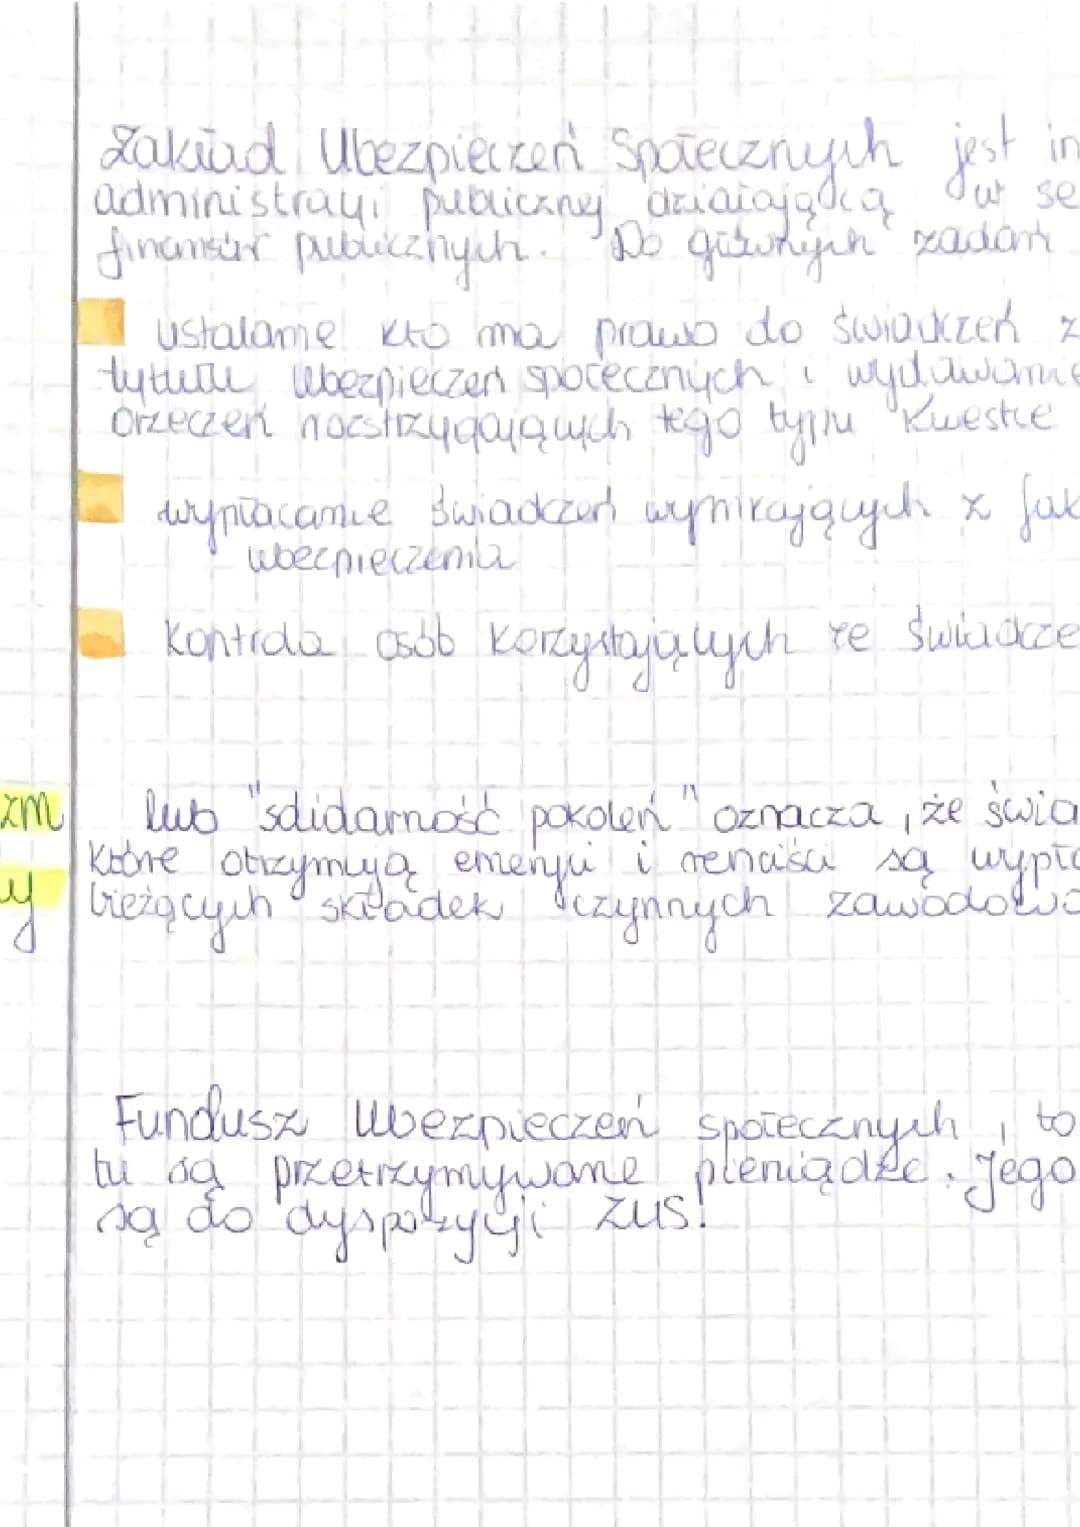 Zakład Ubezpieczeń Społecznych jest in
administracji publicznej działającą w se
finansów publicznych. Do głównych zadań
ustalanie kto ma prawo do świadczeń z
tytułu ubezpieczeń społecznych i wydawanie
orzeczeń rozstrzygających tego typu kwestie
wypłacanie świadczeń wynikających z fak
ubezpieczenia
kontrola osób korzystających ze świadcze
zm lub "solidarność pokoleń" oznacza, że świa
które otrzymują emeryci i renciści są wypła
y bieżących składek czynnych zawodowo
Fundusz Ubezpieczeń społecznych, to
tu są przetrzymywane pieniądze. Jego
są do dyspozycji ZUS!